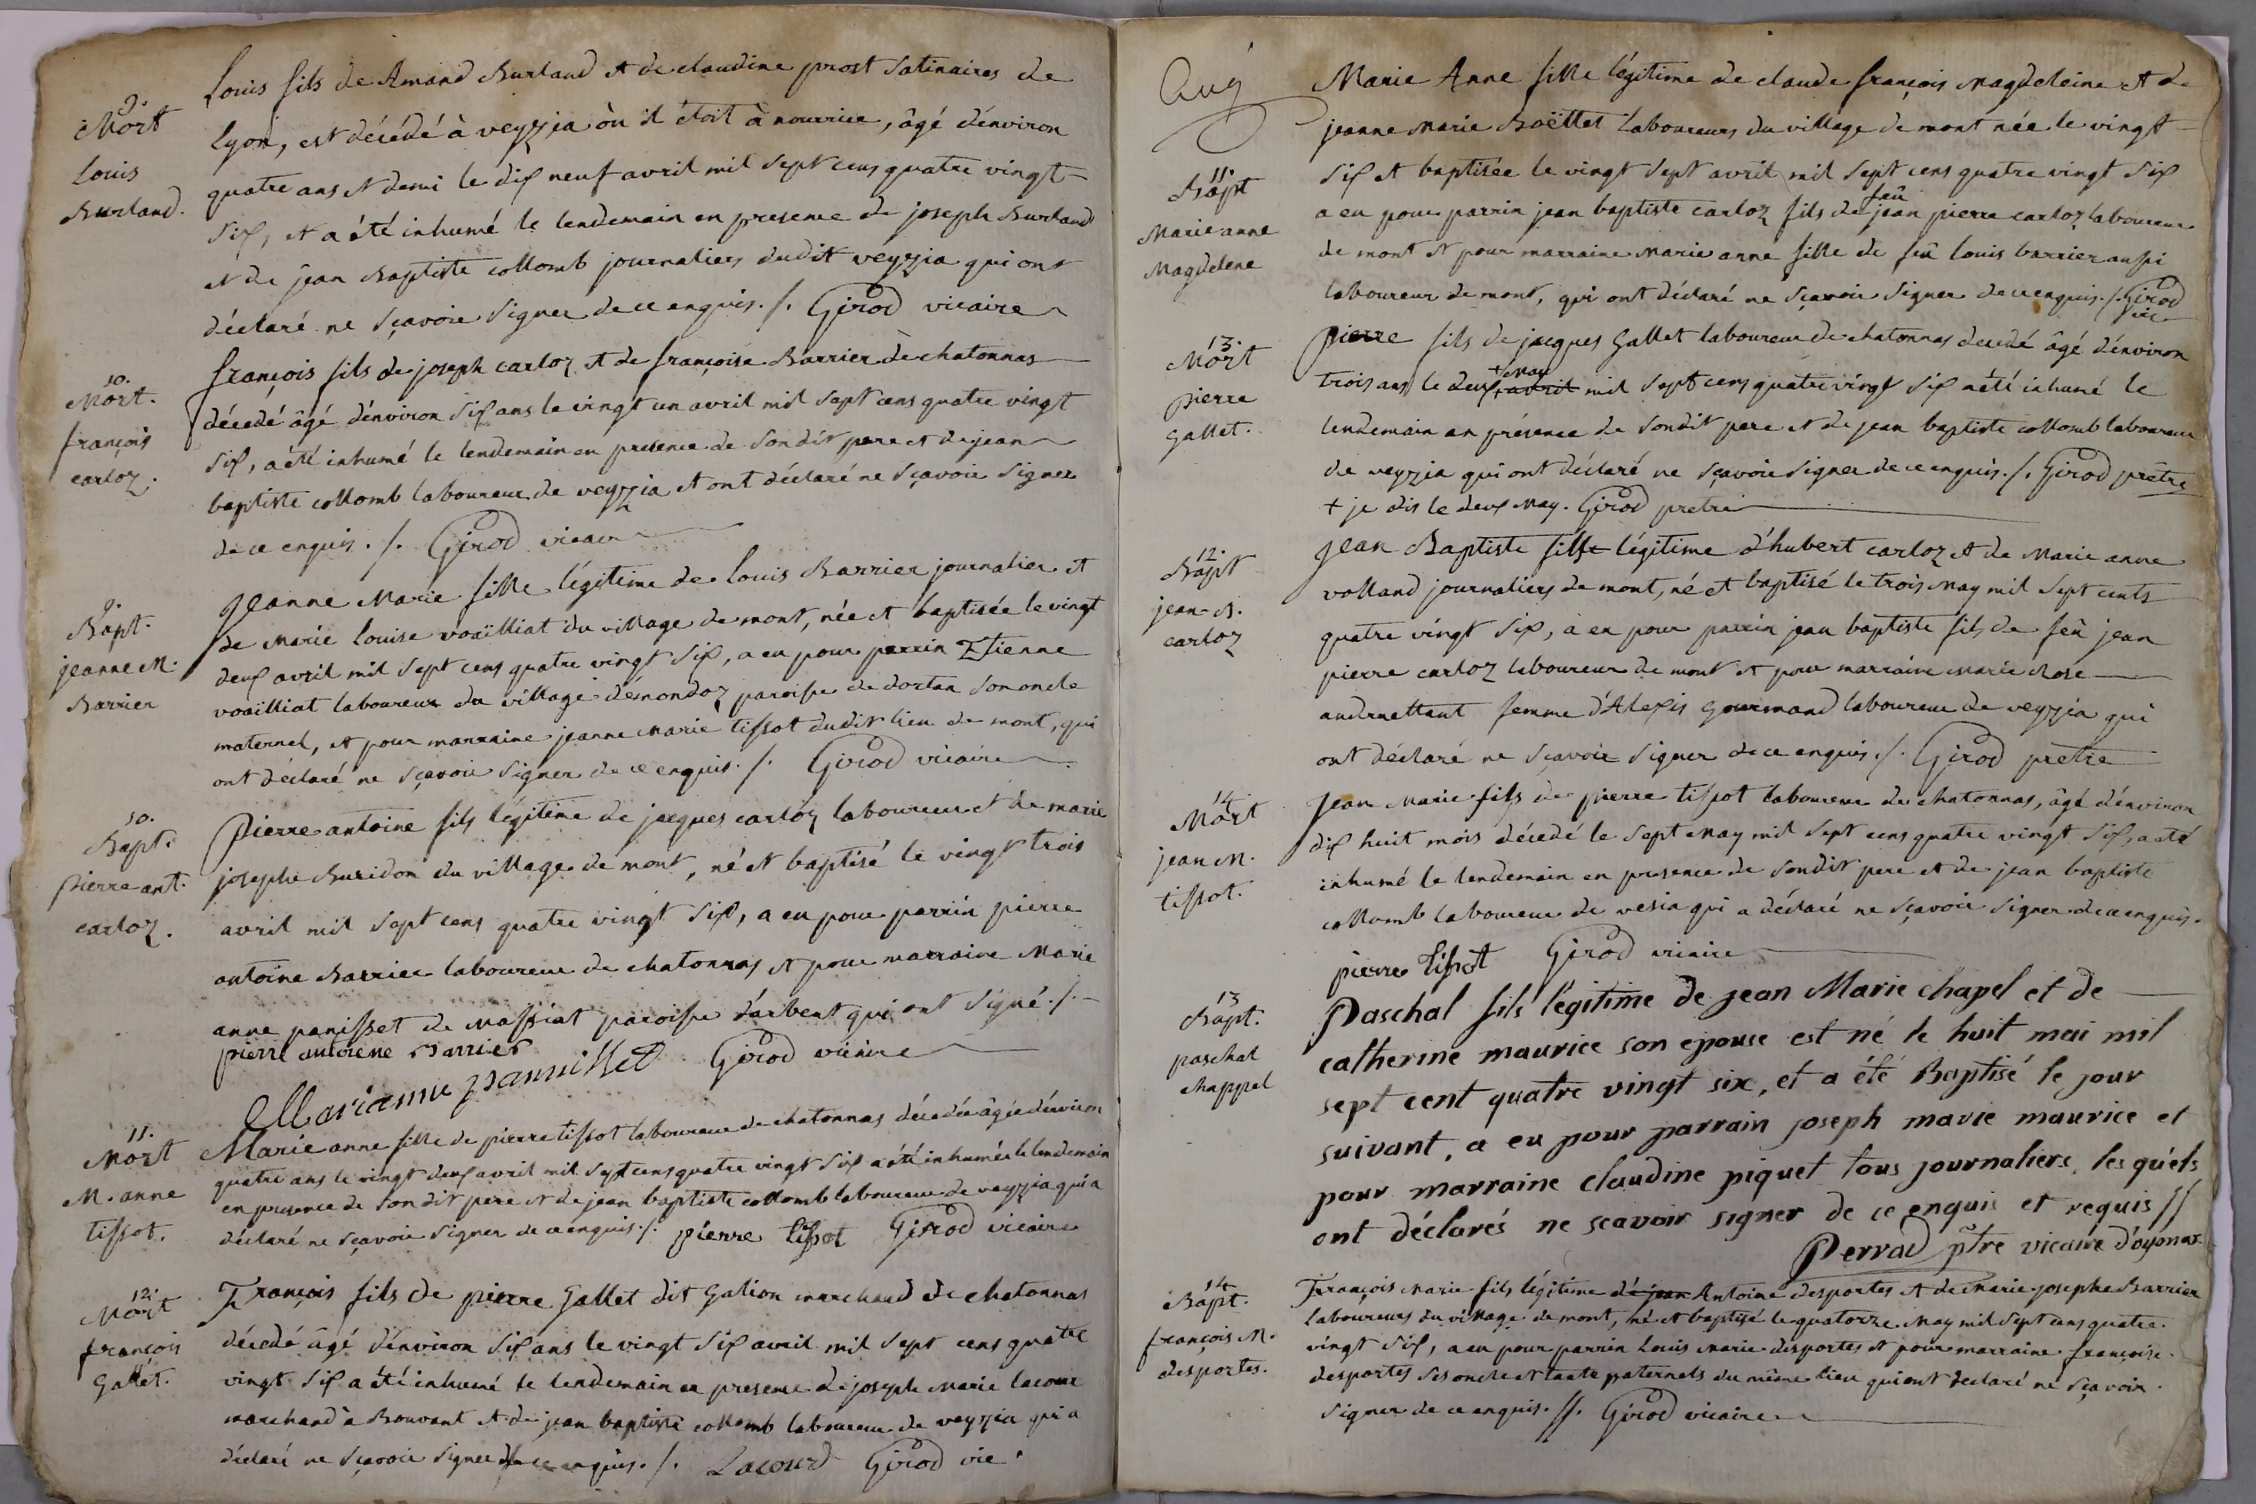 9.
Mort
Louis
Burland.
Louis fils de Amand Burland et de claudine prost satinaires de
Lyon, est décédé à veyzia où il étoit à nourrice, âgé d'environ
quatre ans et demi le dix neuf avril mil sept cens quatre vingt
six, et a été inhumé le lendemain en presence de joseph Burland
et de jean Baptiste collomb journaliers dudit veyzia qui ont
déclaré ne sçavoir signer de ce enquis ./. Girod vicaire
10.
Mort.
françois
carloz.
françois fils de joseph carloz et de françoise Barrier de chatonnas
décedé âgé d'environ six ans le vingt un avril mil sept cens quatre vingt
six, a été inhumé le lendemain en presence de sondit pere et de jean
baptiste collomb laboureur de veyzia et ont déclaré ne sçavoir signer
de ce enquis ./. Girod vicaire
9.
Bapt.
jeanne M.
Barrier
Jeanne Marie fille légitime de Louis Barrier journalier et
de Marie Louise voaïlliat du village de mont, née et baptisée le vingt
deux avril mil sept cens quatre vingt six, a eu pour parrin Etienne
voaïlliat laboureur du village d'émondoz paroisse de dortan son oncle
maternel, et pour marraine jeanne Marie tissot dudit lieu de mont, qui
ont déclaré ne sçavoir signer de ce enquis ./. Girod vicaire
10.
Bapt.
pierre ant.
carloz.
Pierre antoine fils légitime de jacques carloz laboureur et de marie
josephe Buridon du village de mont, né et baptisé le vingt trois
avril mil sept cens quatre vingt six, a eu pour parrin pierre
antoine Barrier laboureur de chatonnas et pour marraine Marie
anne panisset de Massiat paroisse d'arbent qui ont signé ./.
pierre antoiene Barrier
Marianne pannisset Girod vicaire
11.
Mort
M. anne
tissot.
Marie anne fille de pierre tissot laboureur de chatonnas décedée âgée d'environ
quatre ans le vingt deux avril mil sept cens quatre vingt six a été inhumée le lendemain
en presence de son dit pere et de jean baptiste collomb laboureur de veyzia qui a
déclaré ne sçavoir signer de ce enquis ./. pierre tissot Girod vicaire
12.
Mort
françois
Gallet.
François fils de pierre Gallet dit Galion marchand de chatonnas
décedé âgé d'environ six ans le vingt six avril mil sept cens quatre
vingt six a été inhumé le lendemain en presence de joseph Marie lacour
marchand à Bouvant et de jean baptiste collomb laboureur de veyzia qui a
déclaré ne sçavoir signer de ce enquis ./. Lacour Girod vic.
11.
Bapt
Marie anne
Magdelene
Marie Anne fille légitime de claude françois Magdeleine et de
jeanne Marie Boëttet laboureurs du village de mont née le vingt
six et baptisée le vingt sept avril mil sept cens quatre vingt six
a eu pour parrin jean baptiste carloz fils de feû jean pierre carloz laboureur
de mont et pour marraine Marie anne fille de feû louis barrier aussi
laboureur de mont, qui ont déclaré ne sçavoir signer de ce enquis ./. Girod
vic
13.
Mort
pierre
Gallet.
Pierre fils de jacques Gallet laboureur de chatonnas decedé âgé d'environ
trois ans le deux + avril may mil sept cens quatre vingt six a été inhumé le
lendemain en présence de sondit pere et de jean baptiste collomb laboureur
de veyzia qui ont déclaré ne sçavoir signer de ce enquis ./. Girod prêtre
+ je dis le deux May. Girod pretre
12.
Bapt
jean B.
carloz
Jean Baptiste fils légitime d'hubert carloz et de Marie anne
volland journaliers de mont, né et baptisé le trois May mil sept cents
quatre vingt six, a eu pour parrin jean baptiste fils de feû jean
pierre carloz laboureur de mont et pour marraine Marie Rose
andrnettant femme d'Alexis Gourmand laboureur de veyzia qui
ont déclaré ne sçavoir signer de ce enquis ./. Girod pretre
14
Mort
jean M.
tissot.
Jean Marie fils de pierre tissot laboureur de chatonnas, âgé d'environ
dix huit mois décedé le sept May mil sept cens quatre vingt six, a été
inhumé le lendemain en presence de sondit pere et de jean baptiste
collomb laboureur de vesia qui a déclaré ne sçavoir signer de ce enquis.
pierre tissot Girod vicaire
13
Bapt.
paschal
chappel
Paschal fils légitime de jean Marie chapel et de
catherine maurice son epouse est né le huit mai mil
sept cent quatre vingt six, et a été Baptisé le jour
suivant, a eu pour parrain joseph marie maurice et
pour marraine claudine piquet tous journaliers, les quels
ont déclarés ne scavoir signer de ce enquis et requis //
Perrad ptre vicaire d'oyonax
14
Bapt.
françois M.
desportes.
François Marie fils légitime de jean Antoine desportes et de Marie josephe Barrier
laboureurs du village de mont, né et baptisé le quatorze May mil sept cens quatre
vingt six, a eu pour parrin Louis Marie desportes et pour marraine françoise
desportes ses oncle et tante paternels du même lieu qui ont declaré ne sçavoir
signer de ce enquis .//. Girod vicaire